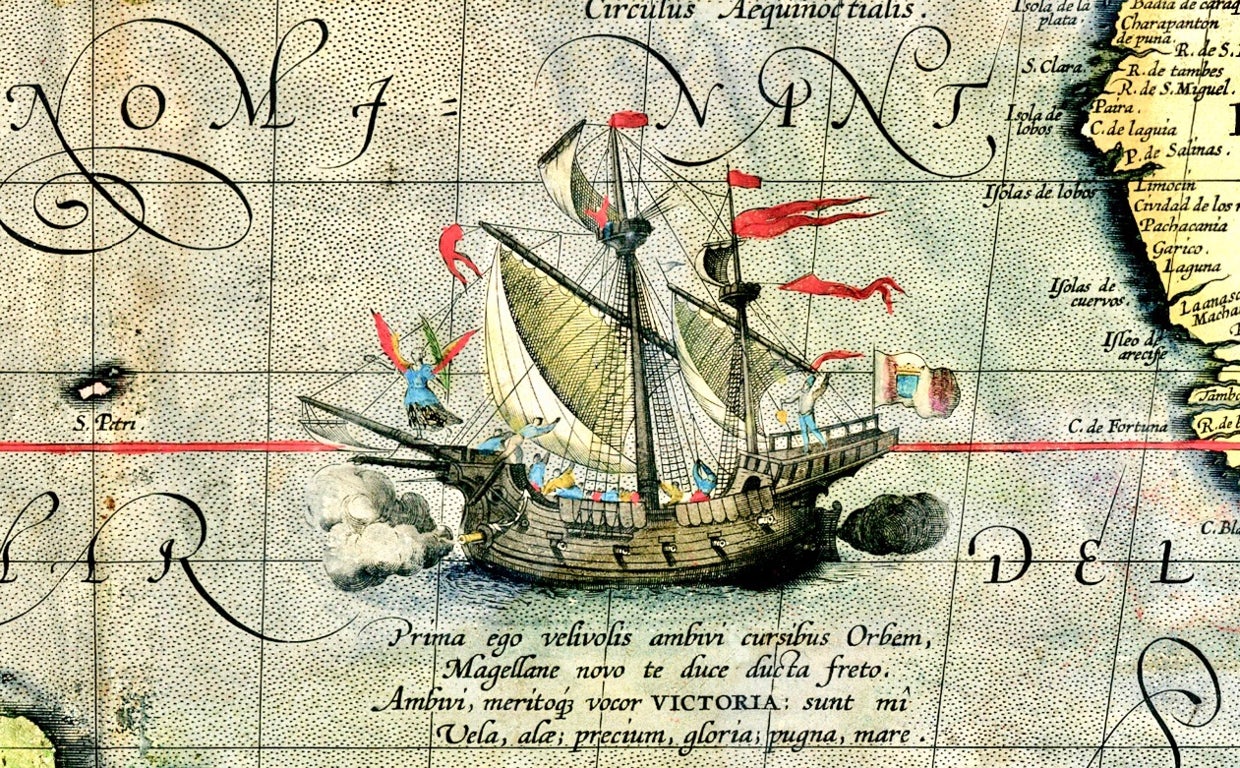 Circulus Aequinoctialis.
NOMI=NANT
S. Petri.
MAR DEL
Isola de la
plata.
Badia de caraq
Charapanton
de puna.
R. de S.
S. Clara.
R. de tambes
R. de S. Miguel.
Isola de
lobos
Paira.
C. de laguia
P. de Salinas.
Isolas de lobos
Limocin
Cividad de los r
Pachacama
Garico.
Laguna
Isolas de
cuervos
Laanasc
Macha
Isleo de
arecife
Tambo
C. de Fortuna
R. de l
C. Bla
Prima ego velivolis ambivi cursibus Orbem,
Magellane novo te duce ducta freto.
Ambivi, meritoqȝ vocor VICTORIA: sunt mî
Vela, alæ; precium, gloria; pugna, mare.